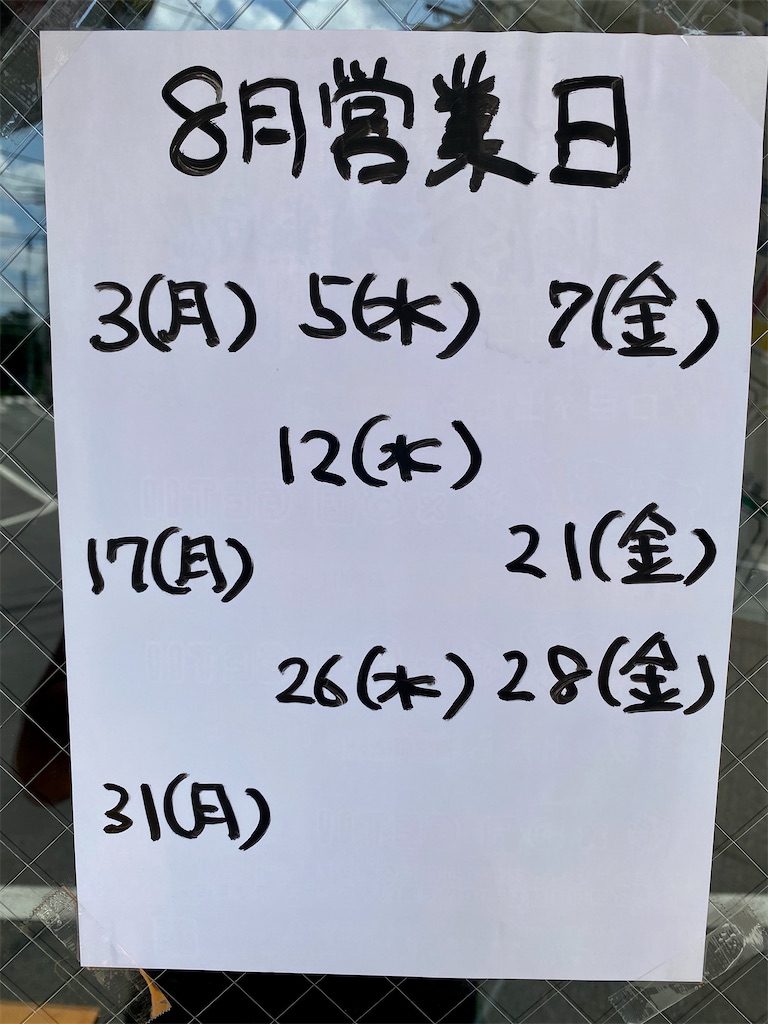 8月営業日
3(月) 5(水) 7(金)
12(水)
17(月) 21(金)
26(水) 28(金)
31(月)